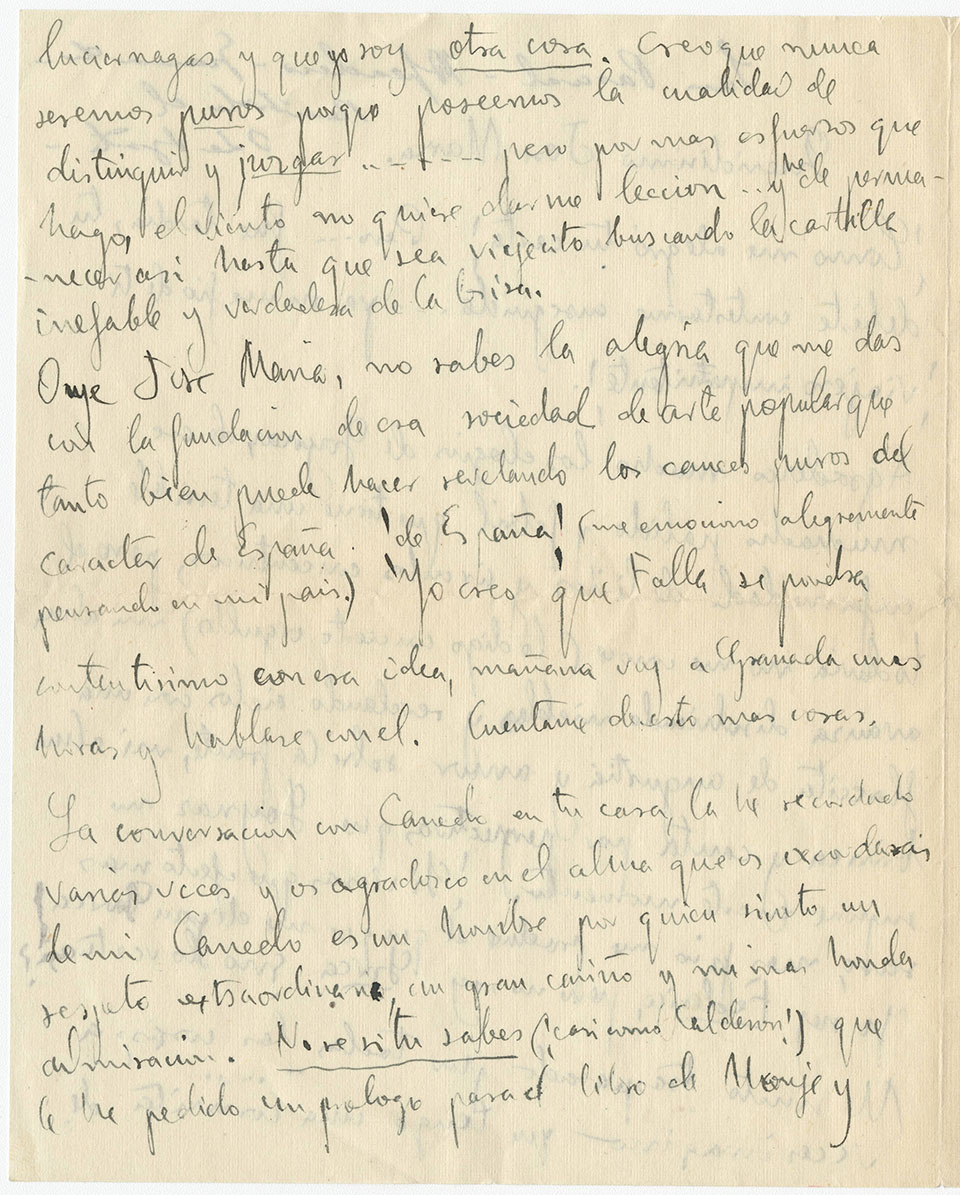 luciernagas y que yo soy otra cosa. Creo que nunca
seremos puros porque poseemos la cualidad de
distinguir y juzgar ......... pero por mas esfuerzos que
hago, el viento no quiere darme leccion ... y he de perma-
-necer asi hasta que sea viejecito buscando la cartilla
inefable y verdadera de la brisa.
Oye Jose Maria, no sabes la alegria que me das
con la fundacion de esa sociedad de arte popular que
tanto bien puede hacer revelando los cauces puros del
caracter de España. ¡de España! (me emociono alegremente
pensando en mi pais.) Yo creo que Falla se pondra
contentisimo con esa idea, mañana voy a Granada unas
horas y hablare con el. Cuentame de esto mas cosas.
La conversacion con Canedo en tu casa, la he recordado
varias veces y os agradosco en el alma que os
de mi Canedo es un hombre por quien siento un
respeto extraordinario, un gran cariño y mi mas honda
admiracion. No se si tu sabes (¡casi como Calderon!) que
le he pedido un prologo para el libro de y